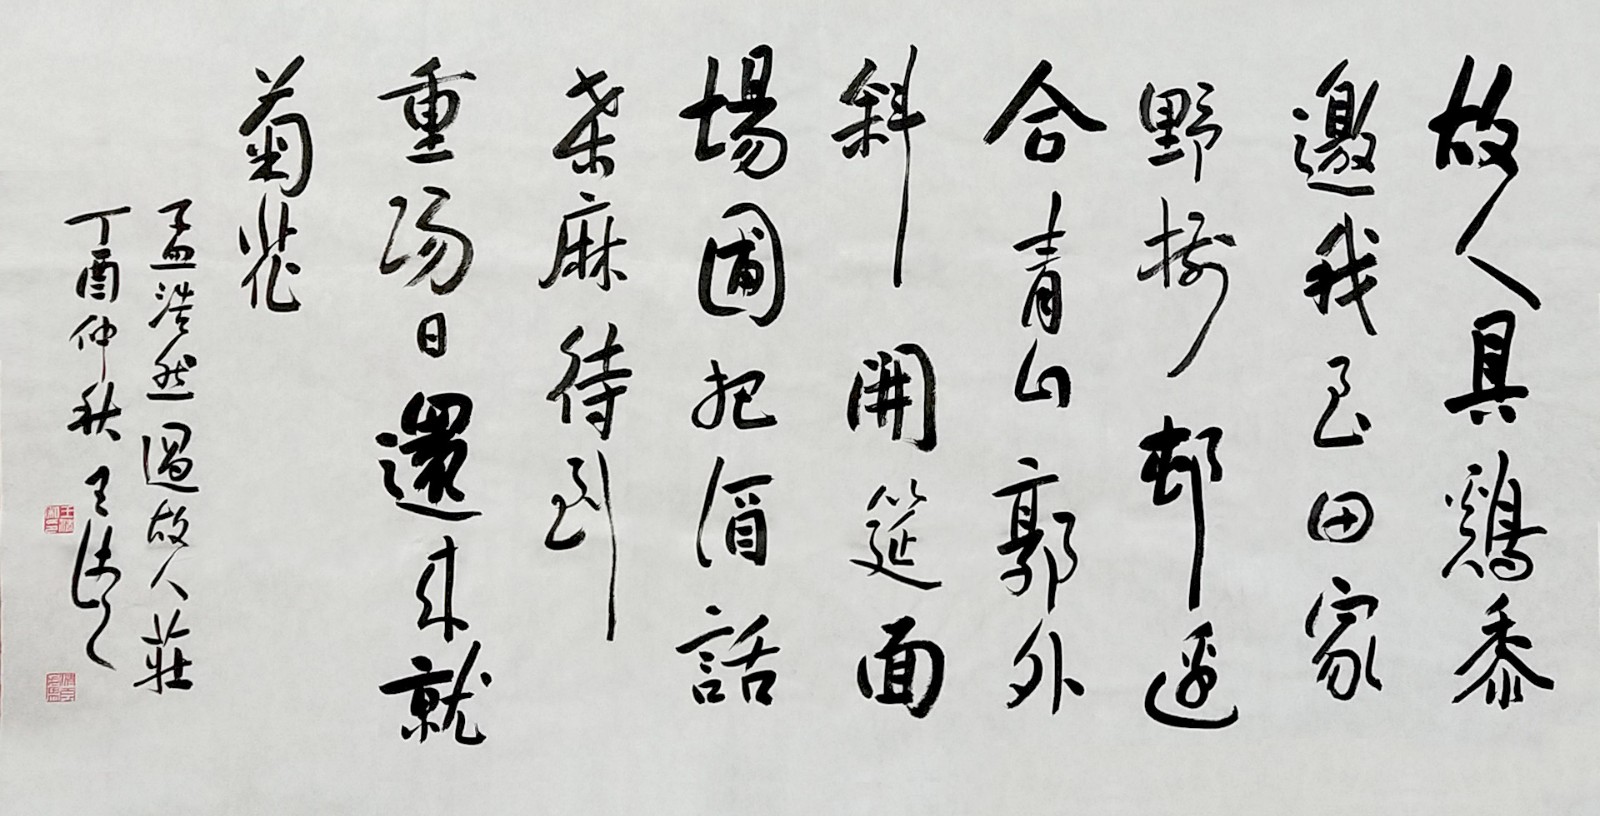 故人具鷄黍
邀我至田家
野樹邨邊
合青山郭外
斜開筵面
場圃把酒話
桒麻待到
重陽日還来就
菊花
孟浩然過故人莊
丁酉仲秋王